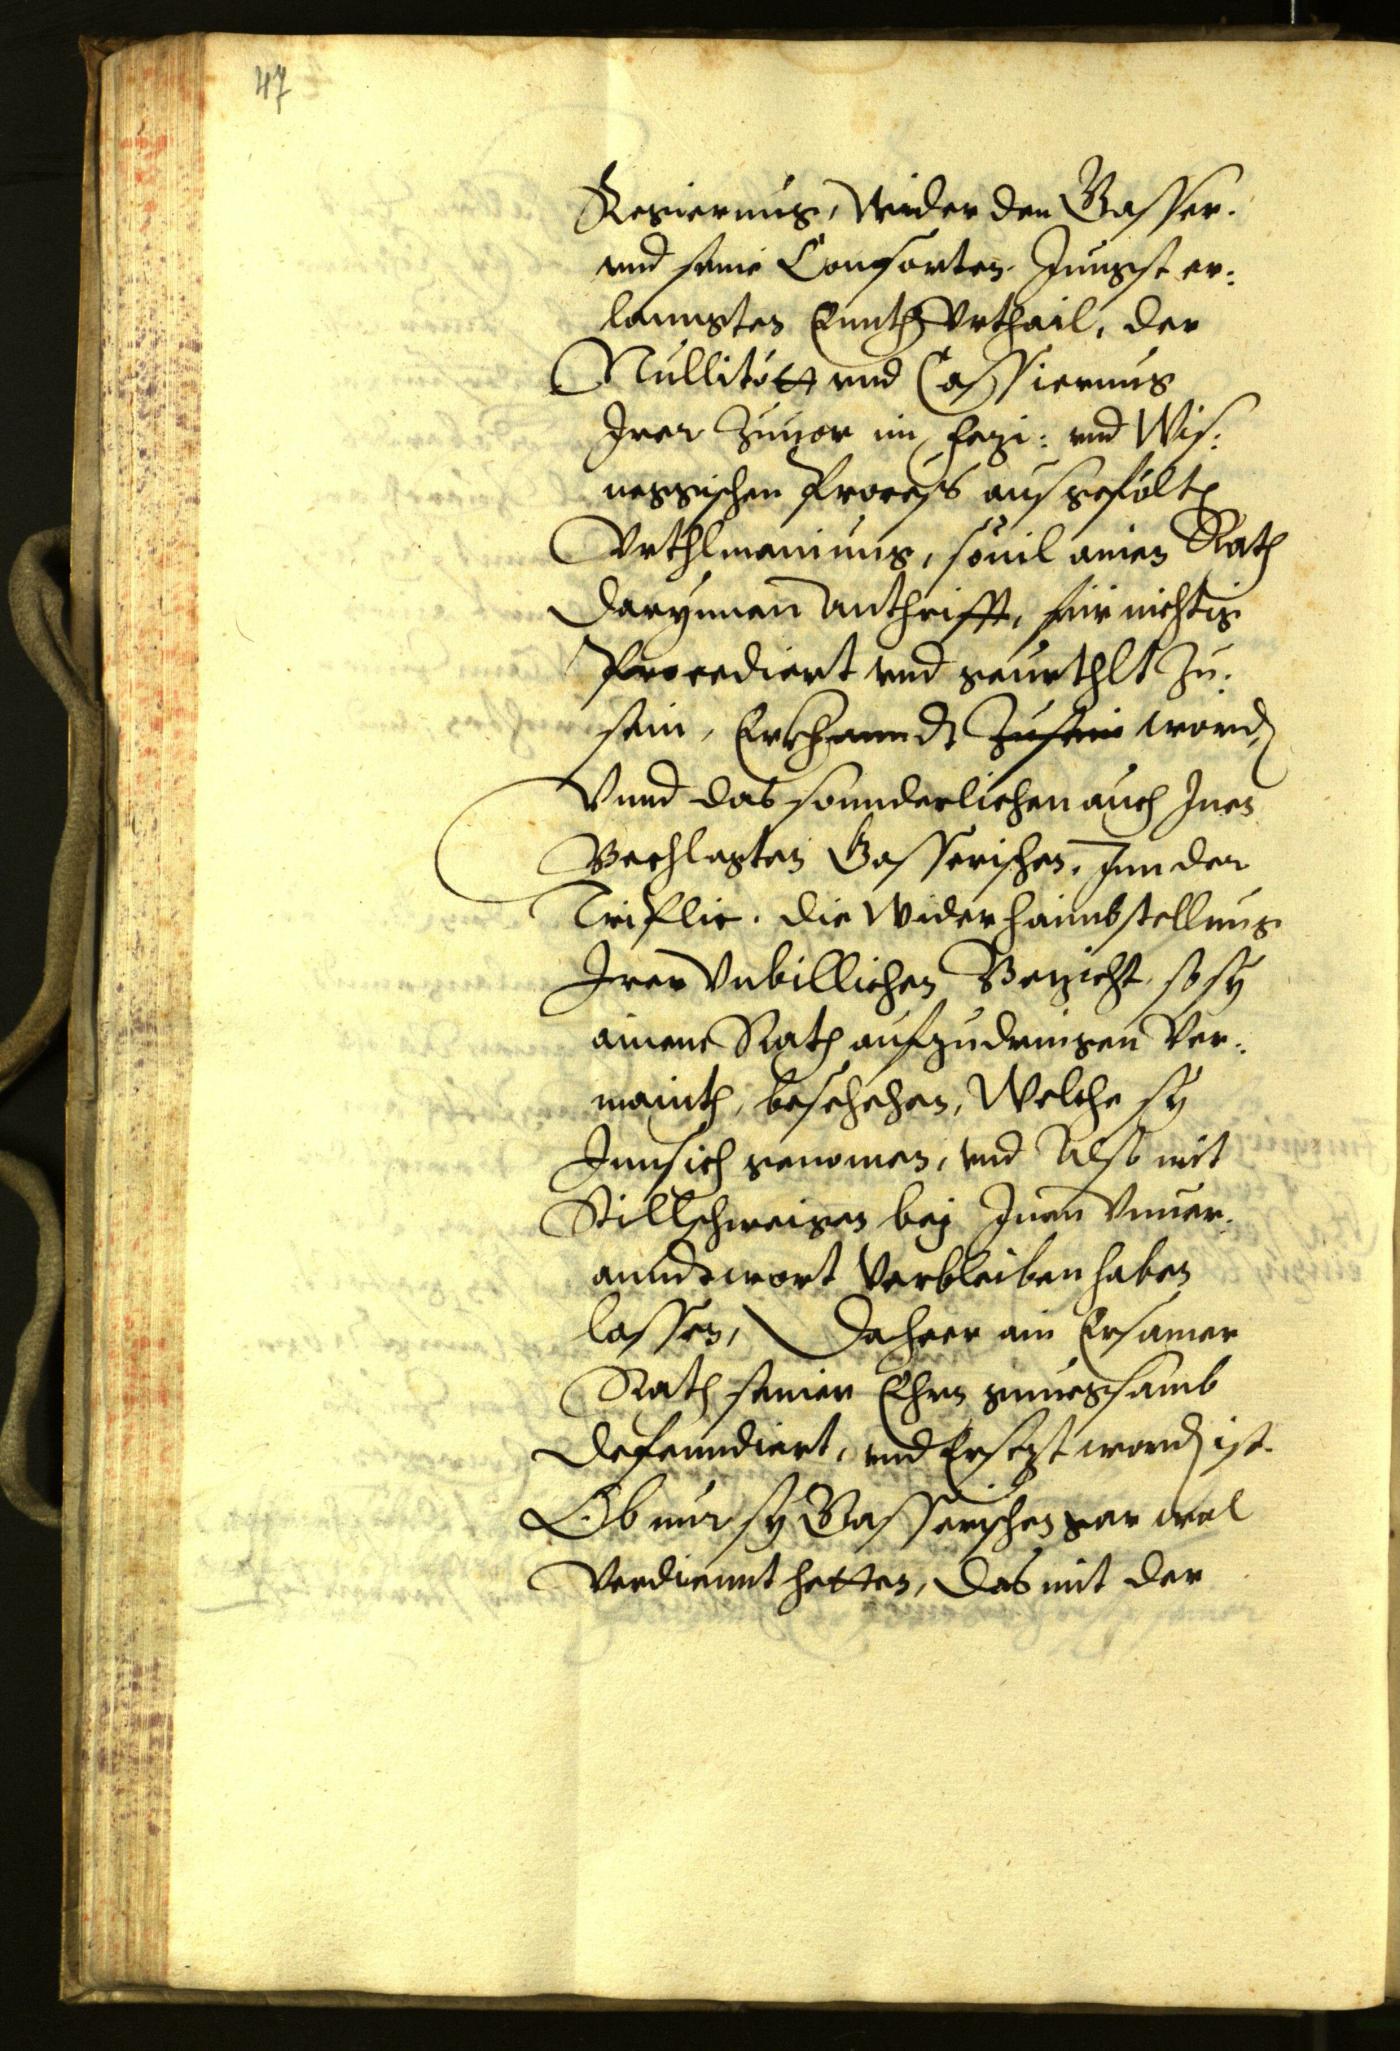 47
Regierung, Wider den Gasser.
vnd seine Consorten Jungst er:
langten Ennth Vrthail, der
Nullitött vnd Cassierung
Irer zuuor im Fezi: vnd Wis:
neggischen Process aus gefölt
Vrthlmainung, souil ainen Rath
darynnen anthrifft, für nichtig
Procediert vnd geurthlt zu:
sein, Erkhanndt zusein word
Vnnd das sonnderlichen auch Inen
Beclagten Gasserischen, Inn der
Triplic. die Widerhaimbstellung
Irer Vnbillichen Bezicht, so sy
ainem Rath aufzudringen Ver:
mainth, beschehen, Welche sy
Inn sich genomen, vnd Also mit
Stillschweigen bey Inen Vnuer.
anndtwort Verbleiben haben
lassen, Daheer ain Ersamer
Rath seiner Ehrn gnuegsamb
defenndiert, vnd Ersezt word ist.
Ob nur sy Gasserischen gar wol
Verdiennt hetten, das mit der